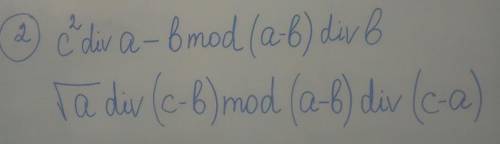 2 c² div a - b mod (a-b) div b
√a div (c-b) mod (a-b) div (c-a)